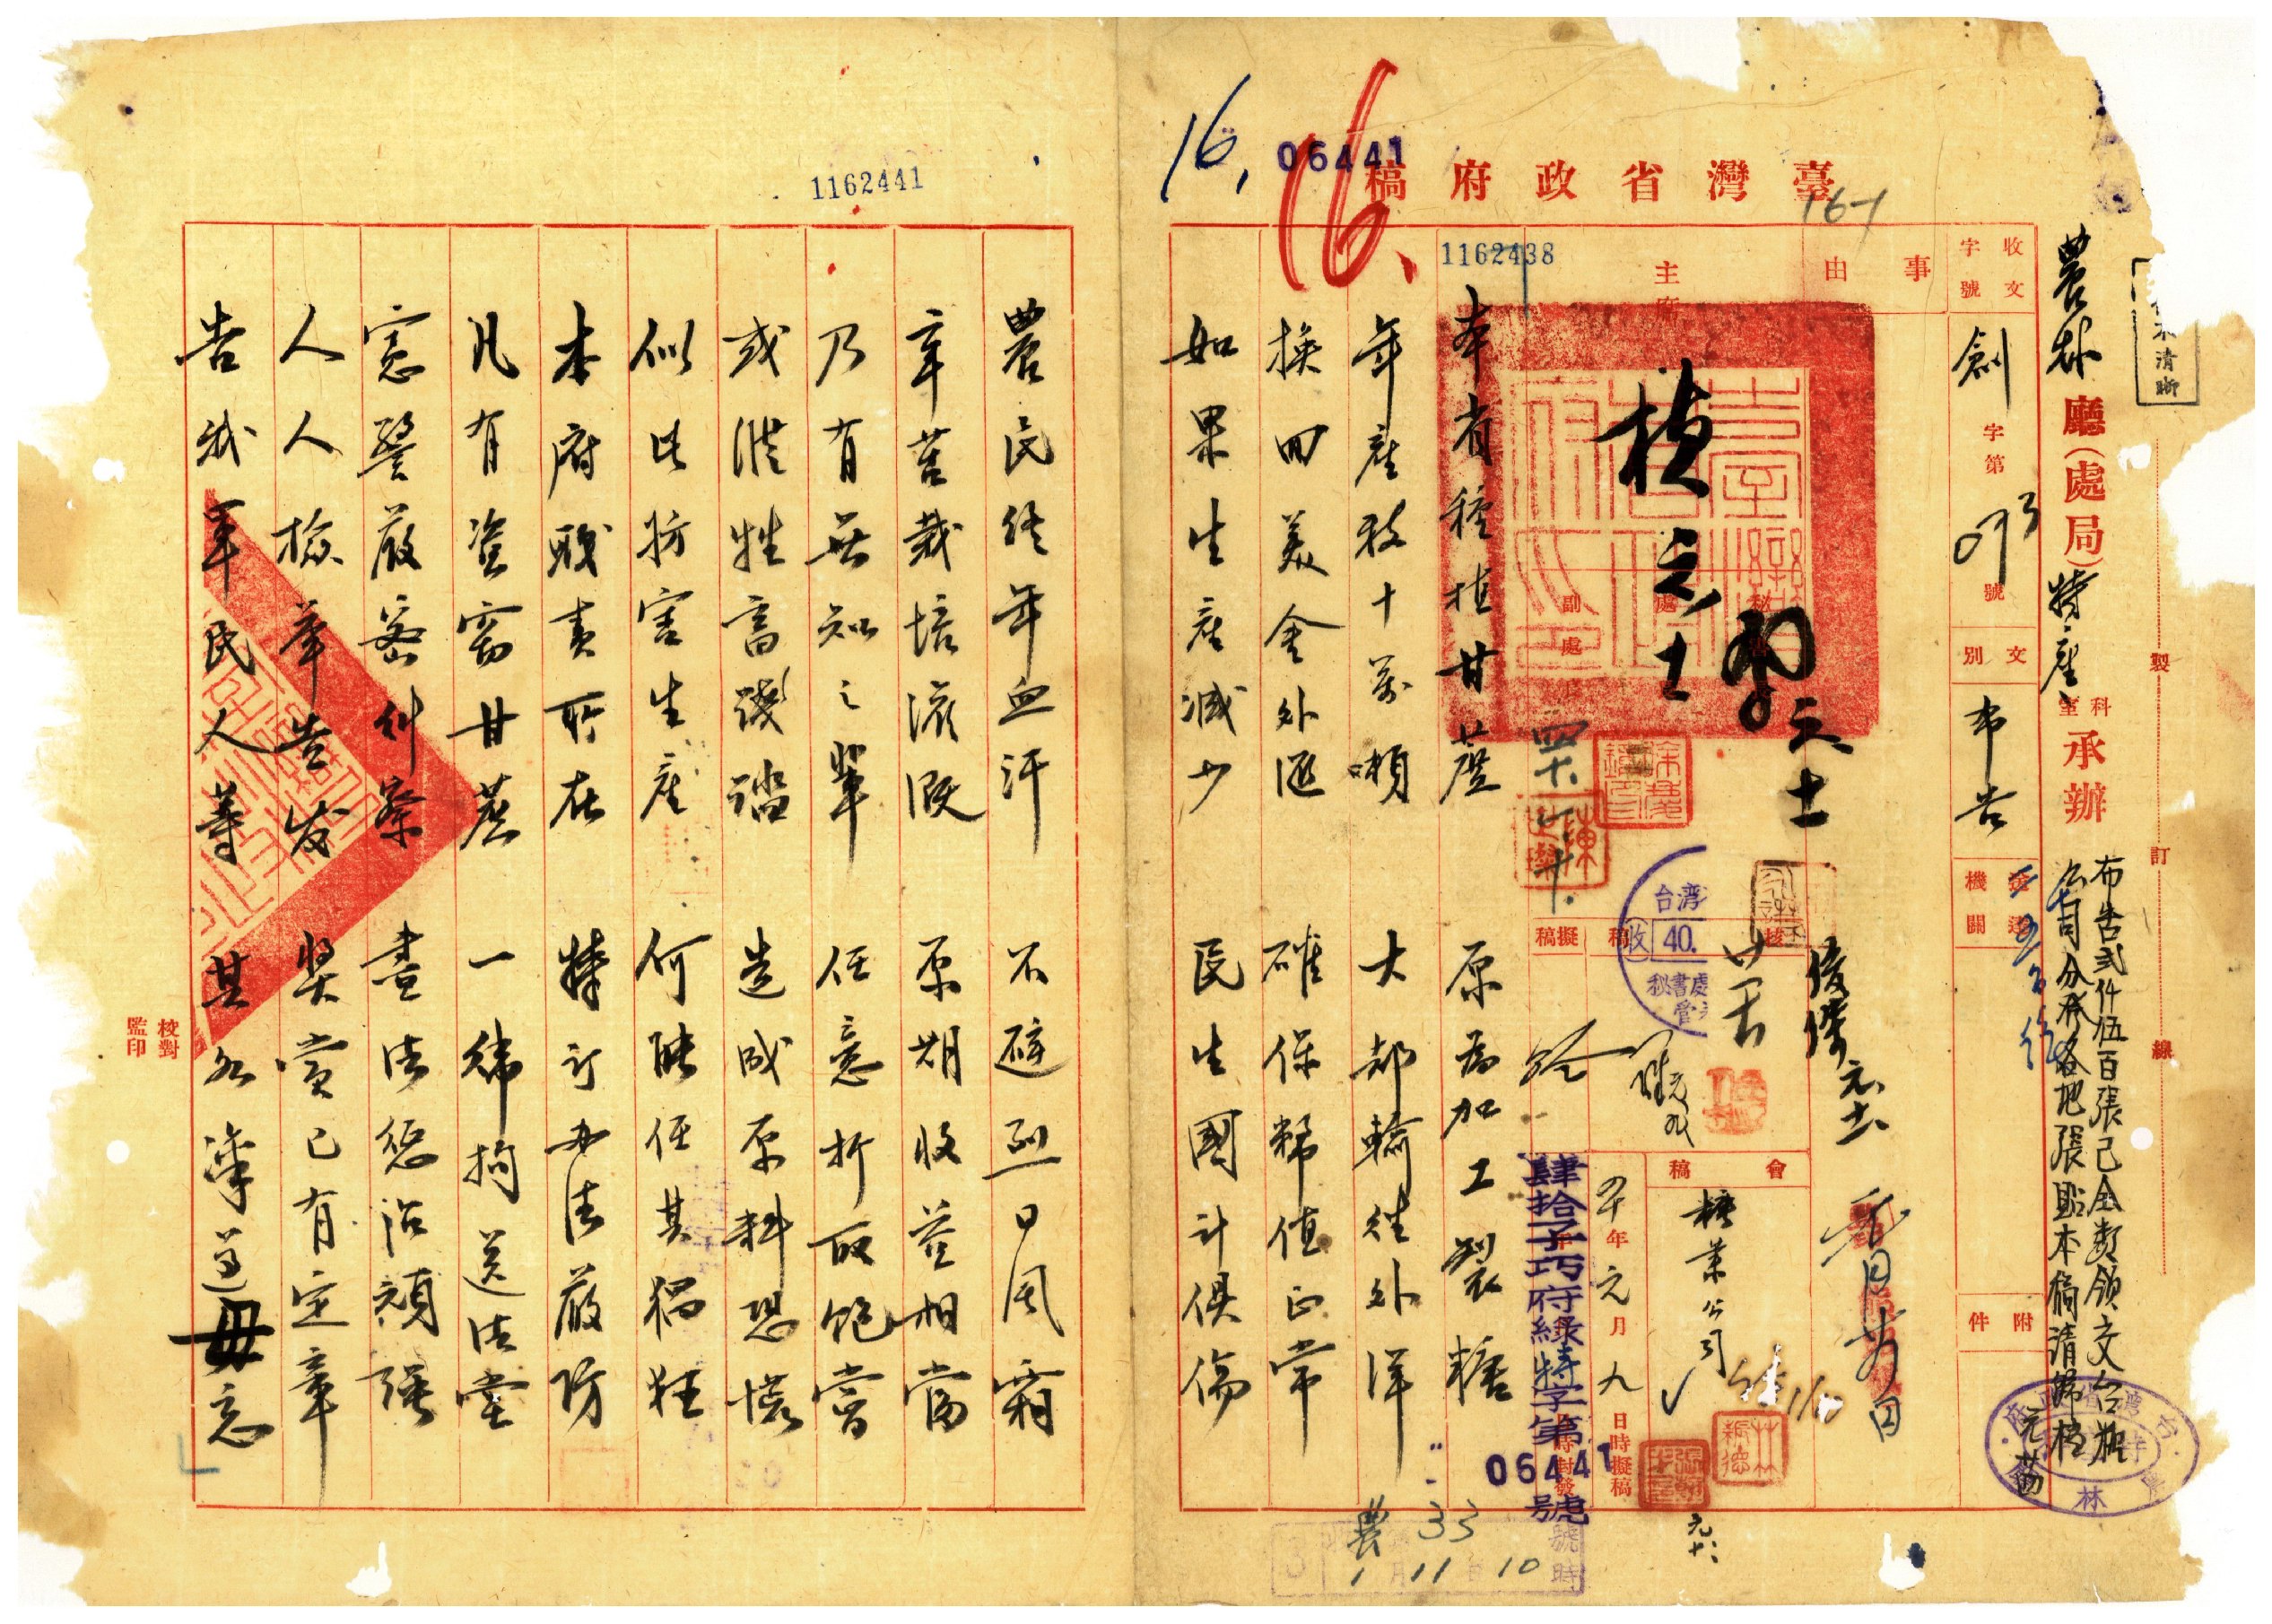 16.
06441
16.
臺灣省政府稿
16-1
1162438
1162441
農林廳(處局)特產科室承辦
布告弍仟伍百張已全數領交台糖
公司分發各地張貼本稿清歸檔
製
訂
線
收文
字號
創字第
號
文別
布告
送達
機關
附件
事由
主席
楨
元
十
秘書處
副處
核稿
擬稿
會稿
糖業公司
四十年元月九日時擬稿
肆拾子巧府綠特字第06441號
台湾
收 40.
秘書處
農 33
1 11 10
本省種植甘蔗 原為加工製糖
年產數十萬噸 大部輸往外洋
換回美金外匯 確保幣值正常
如果生產減少 民生國計俱傷
農民終年血汗 不避烈日風霜
辛苦栽培灌溉 原期收益相當
乃有無知之輩 任意折取飽嘗
或供牲畜殘踏 造成原料恐慌
似此妨害生產 何能任其猖狂
本府職責所在 特訂辦法嚴防
凡有盜竊甘蔗 一律拘送法堂
憲警嚴密糾察 盡法懲治頑強
人人檢舉告發 奬賞已有定章
告誡軍民人等 其各凜遵毋忘
校對
監印